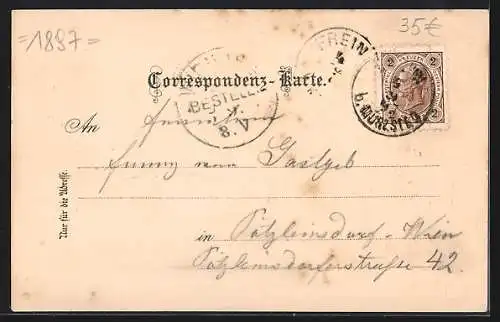 =1897=
35€
FREIN
b. MÜRZSTEG
2 2
2 2
Correspondenz-Karte.
BESTELLT
8. V
An
Fanny von Gastgeb
Nur für die Adresse.
in Pötzleinsdorf-Wien
Pötzleinsdorferstraße 42.